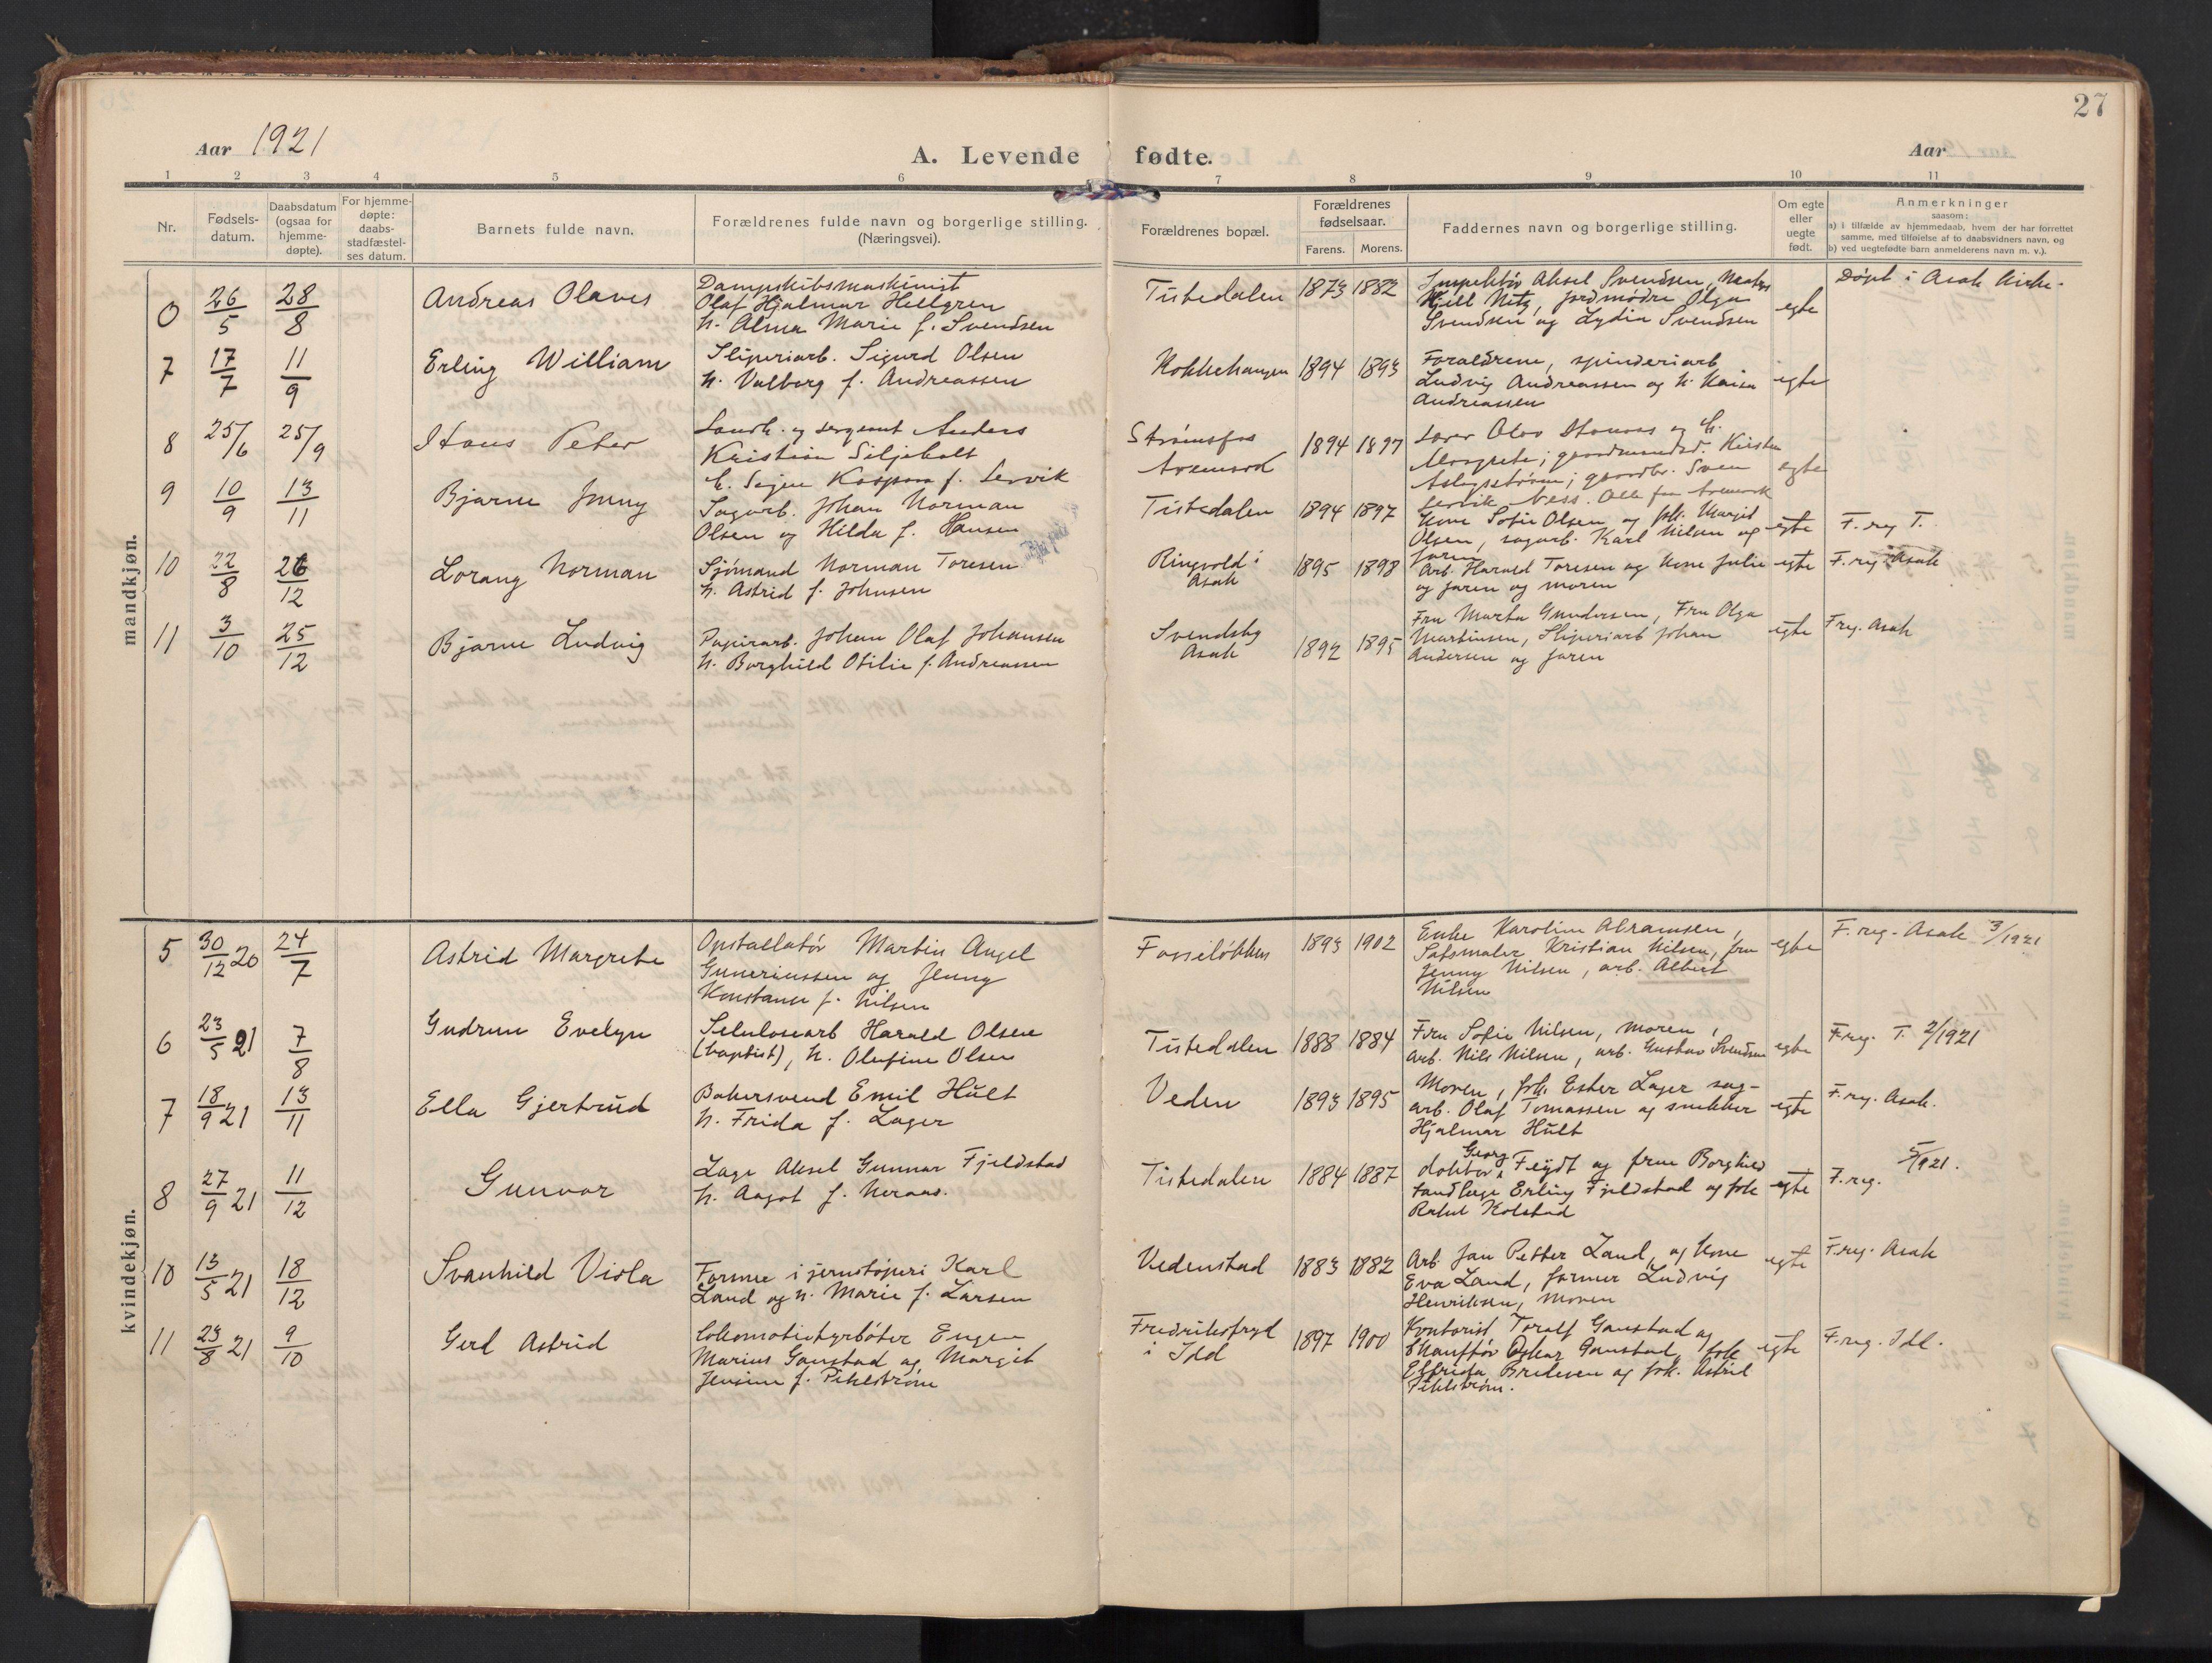 27
Aar 1921
A. Levende fødte.
Aar
1 2 3 4 5 6 7 8 9 10 11
Nr.
Fødsels-
datum.
Daabsdatum
(ogsaa for
hjemme-
døpte).
For hjemme-
døpte:
daabs-
stadfæstel-
ses datum.
Barnets fulde navn.
Forældrenes fulde navn og borgerlige stilling.
(Næringsvei).
Forældrenes bopæl.
Forældrenes
fødselsaar.
Farens. Morens.
Faddernes navn og borgerlige stilling.
Om egte
eller
uegte
født.
Anmerkninger
saasom:
a) i tilfælde av hjemmedaab, hvem der har forrettet
samme, med tilføielse af to daabsvidners navn, og
b) ved uegtefødte barn anmelderens navn m. v.).
mandkjøn.
26/5 28/8
Andreas Olaves
Dampskibsmaskinist
Olaf Hjalmar Hellgren
h. Alma Marie f. Svendsen
Tistedalen 1873 1882
Inspektør Aksel Svendsen,
jordmødre Olga
Svendsen og Lydia Svendsen
egte
Døpt i Asak kirke.
7 17/7 11/9
Erling William
Sliperiarb. Sigurd Olsen
h. Valborg f. Andreassen
1894 1893
Forældrene, spinderiarb.
Ludvig Andreassen og h. Kaisa
Andreassen
egte
8 25/6 25/9
Hans Peter
og sergeant Anders
Kristian Siljeholt
f. Lervik
Strømsfos
Aremark
1894 1897
Lærer Olav og h.
Margrete; Kirsten
gaardbr. Sven
Lervik Alle fra Aremark
egte
9 10/9 13/11
Bjarne Jenny
Sagarb. Johan Norman
Olsen og Hilda f. Hansen
Tistedalen 1894 1897
Kone Sofie Olsen og frk. Margit
Olsen, sagarb. Karl Nilsen og
faren
egte
F. reg T.
10 22/8 26/12
Lorang Norman
Sjømand Norman Toresen
h. Astrid f. Johnsen
Ringvold i
Asak
1895 1898
Arb. Harald Toresen og kone Julie
og faren og moren
egte
F. reg Asak
11 3/10 25/12
Bjarne Ludvig
Papirarb. Johan Olaf Johansen
h. Borghild Otilie f. Andreassen
Svendsby
Asak
1892 1895
Fru Marta Gundersen, Fru Olga
Martinsen, Sliperiarb Johan
Andersen og faren
egte
F reg. Asak
kvindekjøn.
5 30/12 20 24/7
Astrid Margrete
Opstallatør Martin Angel
Guneriussen og Jenny
Konstanse f. Nilsen
Fosseløkken 1893 1902
Enke Karoline Abramsen,
Kristian Nilsen, fru
Jenny Nilsen, arb. Albert
Nilsen
egte
F. reg. Asak 3/1921
6 23/5 21 7/8
Gudrun Evelyn
Selulosearb Harald Olsen
(baptist), h. Olufine Olsen
Tistedalen 1888 1884
Fru Sofie Nilsen, moren,
arb. Nils Nilsen, arb. Gustav Svendsen
egte
F reg. T. 2/1921
7 18/9 21 13/11
Ella Gjertrud
Bakersvend Emil Hult
h. Frida f. Lager
Veden 1893 1895
Moren, frk. Ester Lager sag-
arb. Olaf Tomassen og snekker
Hjalmar Hult
egte
F. reg. Asak.
8 27/9 21 11/12
Gunvor
Læge Aksel Gunnar Fjeldstad
h. Aagot f. Neraas.
Tistedalen 1884 1887
doktor Georg Fejdt og frue Borghild
tandlæge Erling Fjeldstad og frk
Kolstad
egte
F. reg. 5/1921.
10 13/5 21 18/12
Svanhild Viola
Former i jernstøperi Karl
Land og h. Marie f. Larsen
Vedenstad 1883 1882
Arb. Jan Petter Land, og kone
Eva Land, former Ludvig
Henriksen, moren
egte
F. reg. Asak
11 23/8 21 9/10
Gerd Astrid
Lokomotivfyrbøter Eugen
Marius Gaustad og Margit
Jensine f. Pihlstrøm
Fredriksfryd
i Idd
1897 1900
Kontorist Toralf Gaustad og
Chauffør Oskar Gaustad, frk
Elfrida Bredesen og frk. Astrid
Pihlstrøm.
egte
F. reg. Idd.